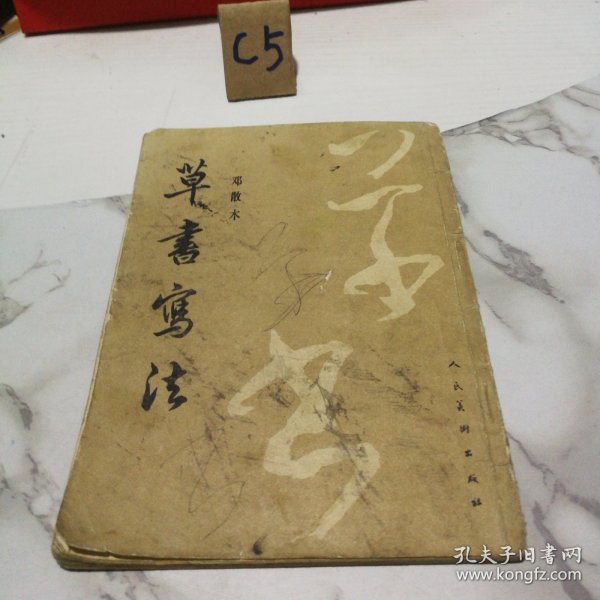 C5
草書寫法
邓散木
草书
人民美术出版社
孔夫子旧书网
www.kongfz.com